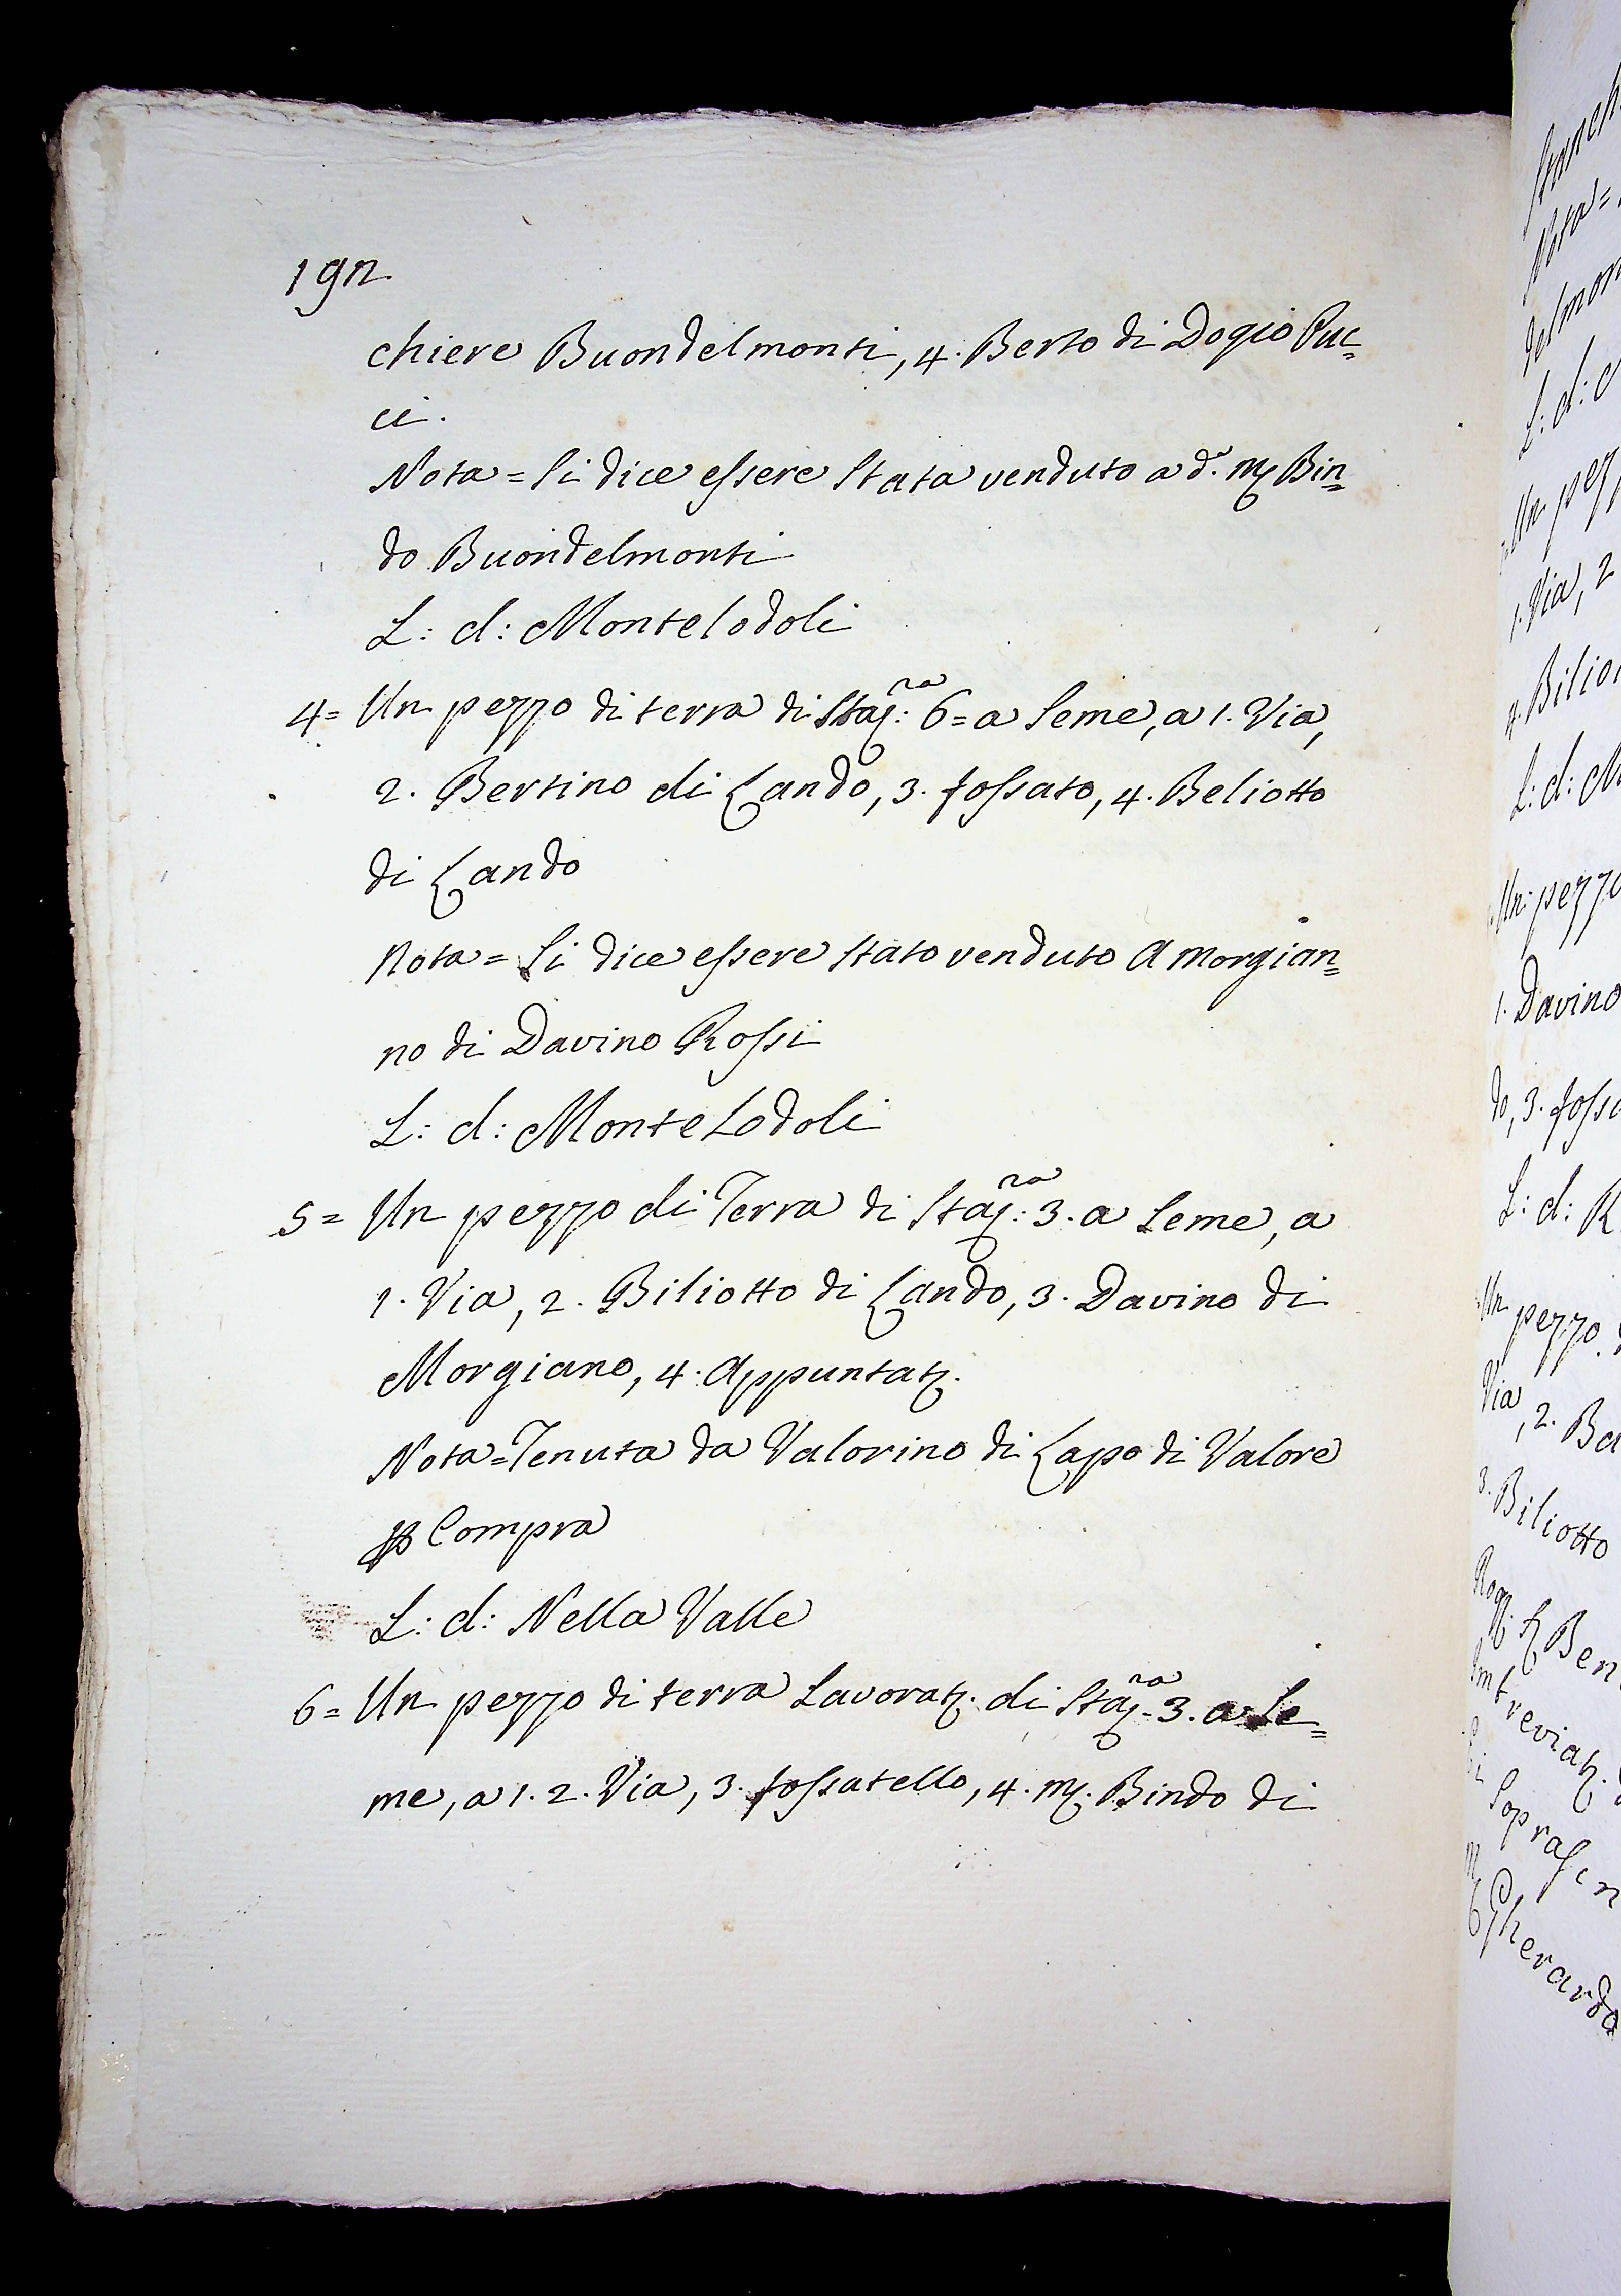 192
chiere Buondelmonti, 4. Berto di Dogio Puc=
ci.
Nota = Si dice essere stata venduto a d.° mʃ Bin=
do Buondelmonti
L: d: Montelodoli
4= Un pezzo di terra di Staʃ:ra 6= a seme, a 1. Via,
2. Bertino di Lando, 3. fossato, 4. Beliotto
di Lando
Nota = Si dice essere stato venduto a Morgian=
no di Davino Rossi
L: d: Monte Lodoli
5= Un pezzo di Terra di Staʃ:ra 3. a Seme, a
1. Via, 2. Biliotto di Lando, 3. Davino di
Morgiano, 4. Appuntatʒ.
Nota = Tenuta da Valorino di Lapo di Valore
ꝑ Compra
L: d: Nella Valle
6= Un pezzo di terra Lavoratʒ. di Staʃ.ra 3. a Se=
me, a 1. 2. Via, 3. fossatello, 4. mʃ. Bindo di
Nota =
delmon
L: d:
Un pez
1. Via, 2
4. Bilio
L: d: M
Un pezzo
1. Davino
do, 3. foss
L: d: R
Un pezzo
Via, 2. Be
3. Biliotto
Ben
Gherardo